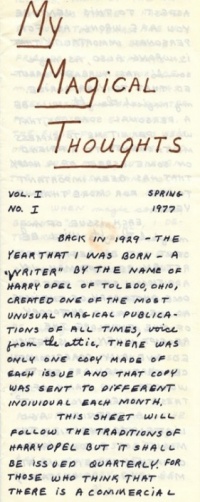 My
Magical
Thoughts
VOL. I SPRING
NO. I 1977
BACK IN 1929 - THE
YEAR THAT I WAS BORN - A
"WRITER" BY THE NAME OF
HARRY OPEL OF TOLEDO, OHIO,
CREATED ONE OF THE MOST
UNUSUAL MAGICAL PUBLICA-
TIONS OF ALL TIMES, voice
from the attic. THERE WAS
ONLY ONE COPY MADE OF
EACH ISSUE AND THAT COPY
WAS SENT TO DIFFERENT
INDIVIDUAL EACH MONTH.
THIS SHEET WILL
FOLLOW THE TRADITIONS OF
HARRY OPEL BUT IT SHALL
BE ISSUED QUARTERLY. FOR
THOSE WHO THINK THAT
THERE IS A COMMERCIAL